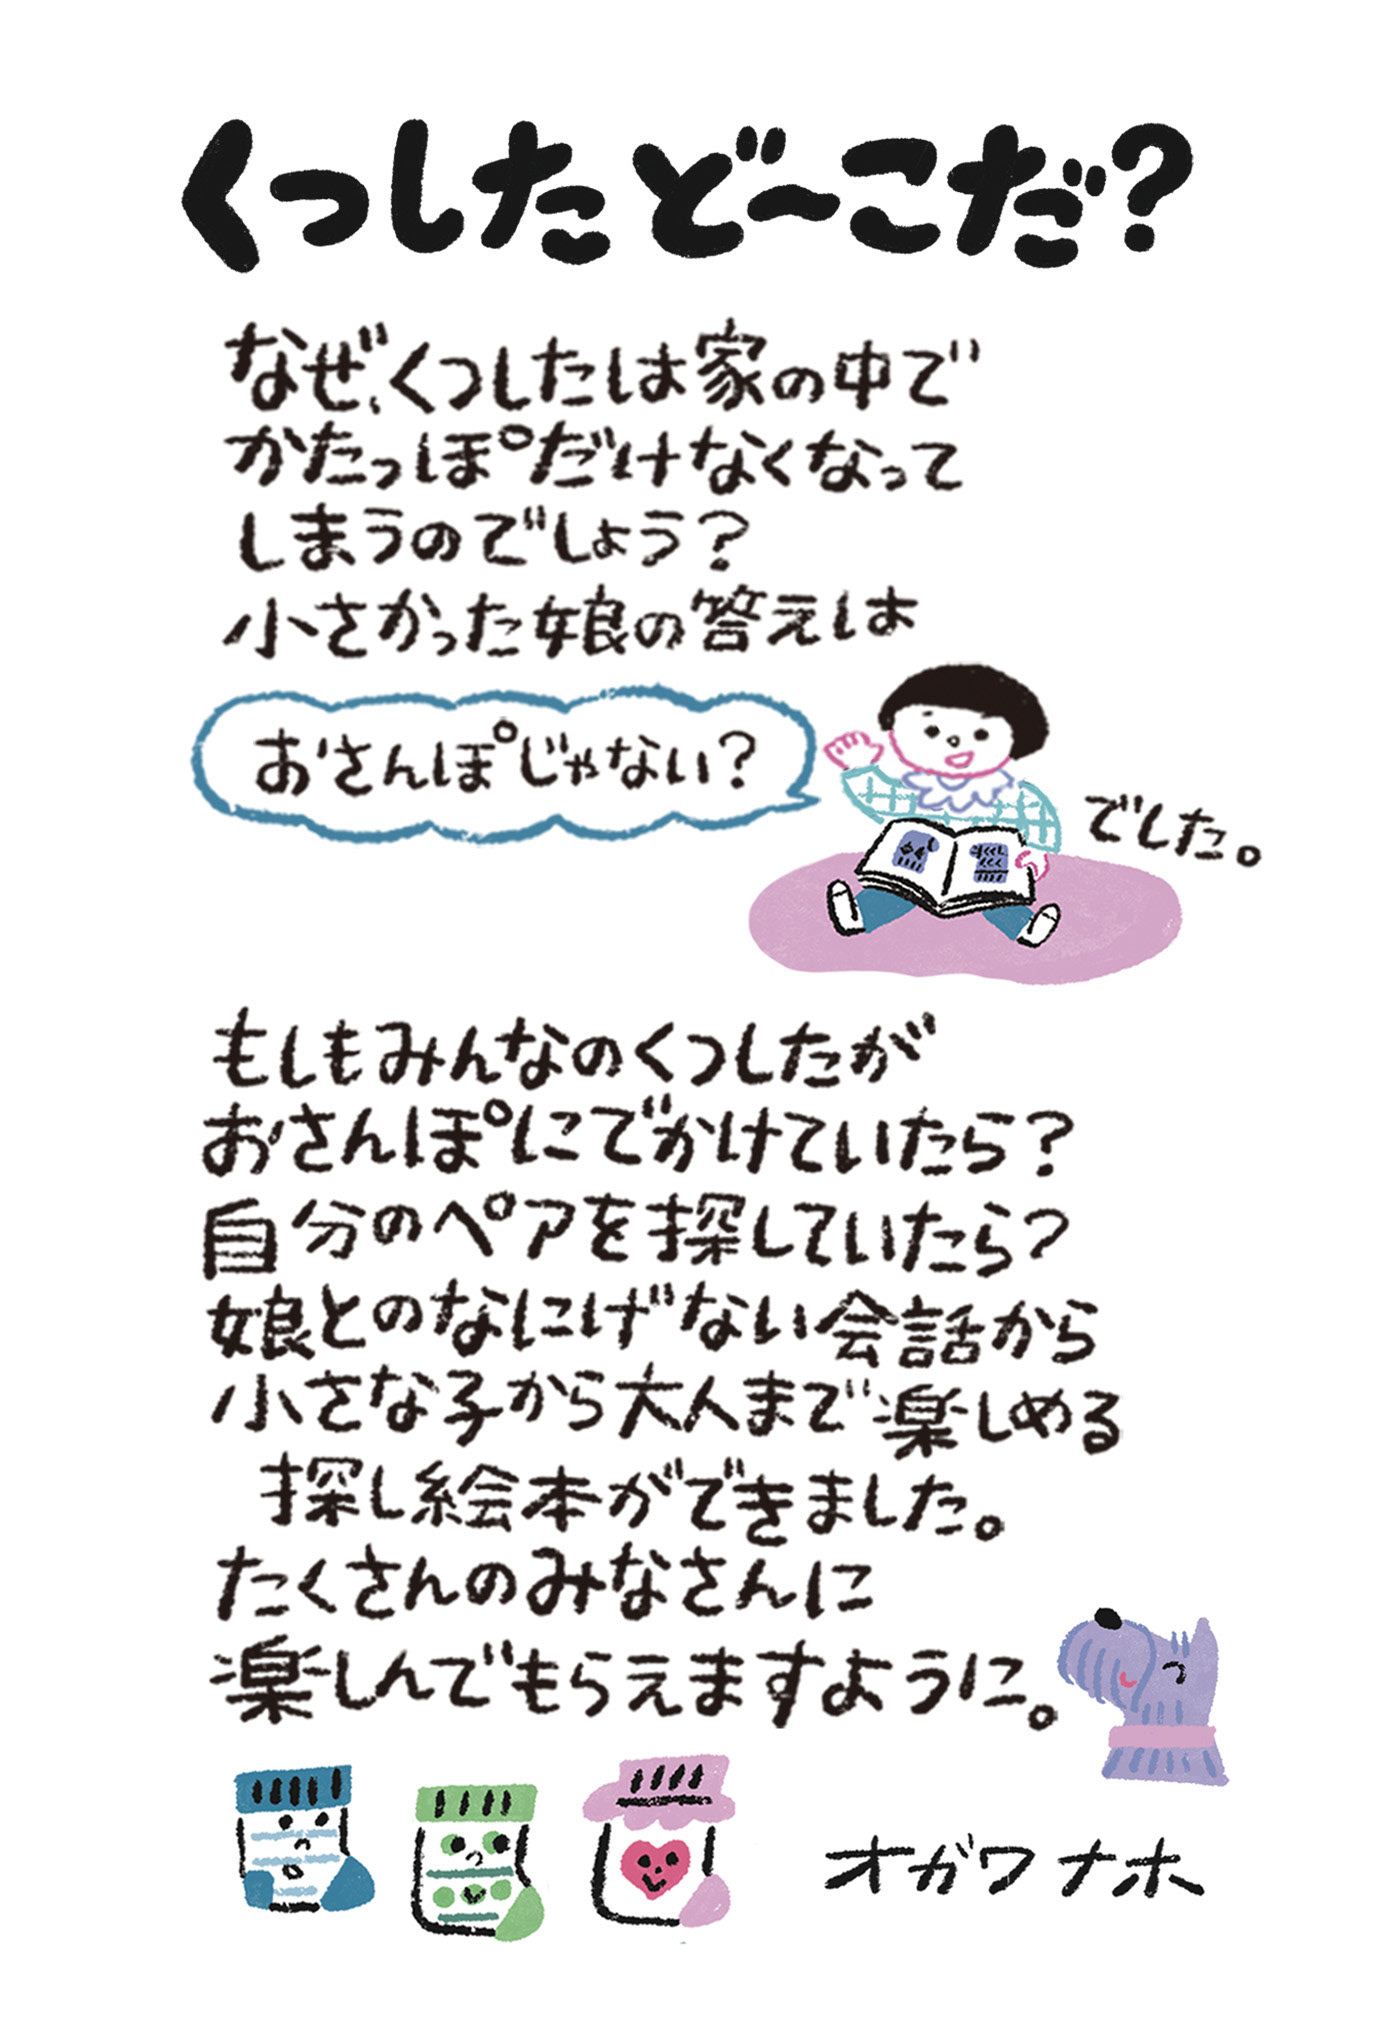 くつした ど〜こだ？
なぜ、くつしたは家の中で
かたっぽだけなくなって
しまうのでしょう？
小さかった娘の答えは
おさんぽじゃない？
でした。
もしもみんなのくつしたが
おさんぽにでかけていたら？
自分のペアを探していたら？
娘とのなにげない会話から
小さな子から大人まで楽しめる
探し絵本ができました。
たくさんのみなさんに
楽しんでもらえますように。
オガワナホ